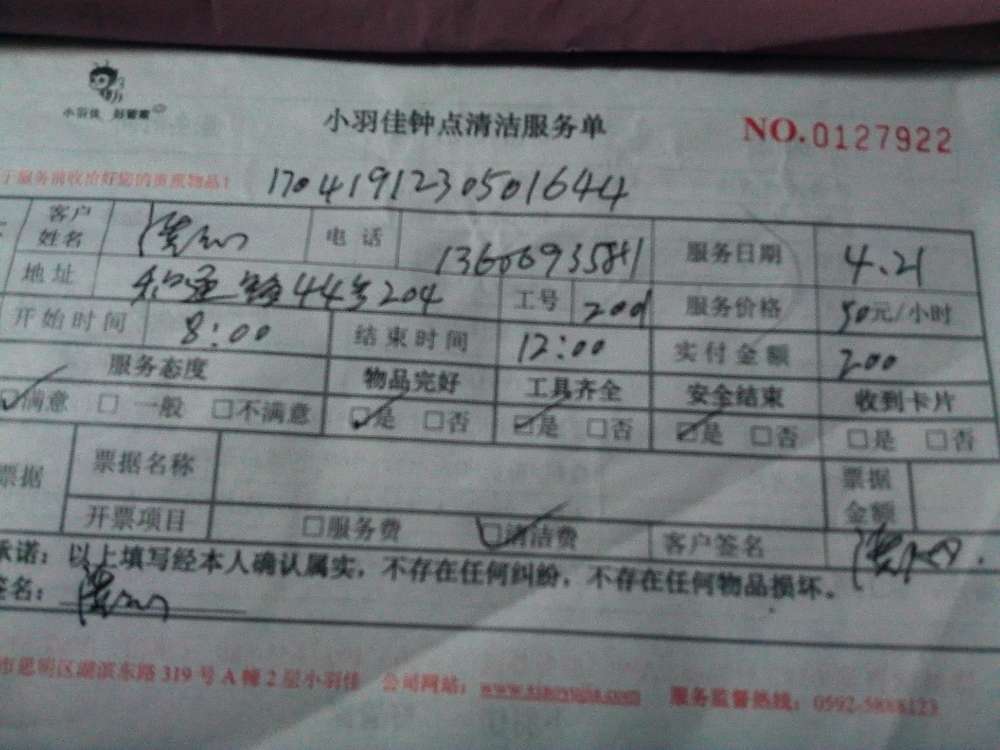 小羽佳
小羽佳钟点清洁服务单 NO.0127922
170419123050501644
客户姓名 电话 服务日期 4.21
地址 44号204 工号 服务价格 50元/小时
开始时间 8:00 结束时间 12:00 实付金额 200
服务态度 物品完好 工具齐全 安全结束 收到卡片
满意 一般 不满意 是 否 是 否 是 否 是 否
票据 票据名称 票据金额
开票项目 服务费 清洁费 客户签名
承诺：以上填写经本人确认属实，不存在任何纠纷，不存在任何物品损坏。
签名：
市思明区湖滨东路319号A幢2层小羽佳 公司网站： 服务监督热线：0592-5888123